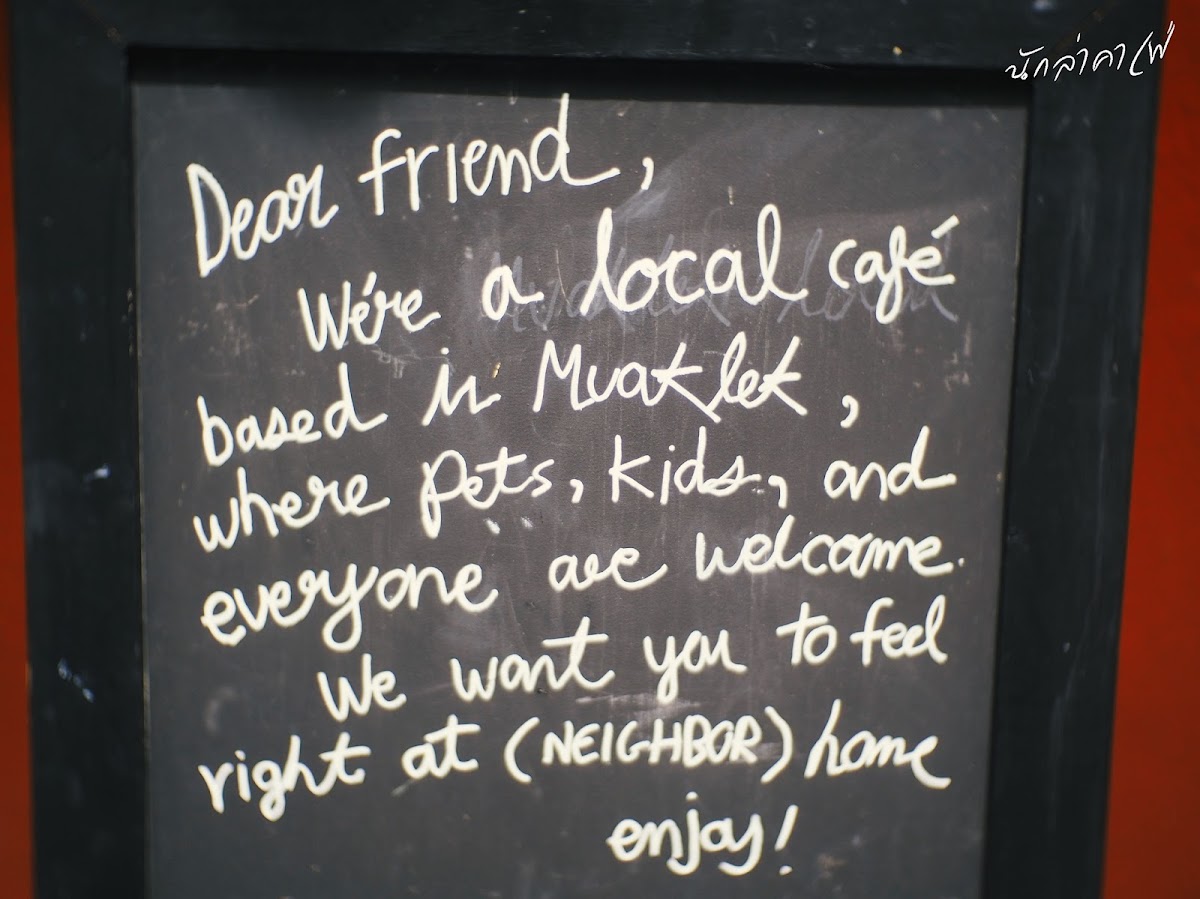 นักล่าคาเฟ่
Dear friend,
We're a local café
based in Muaklek,
where pets, kids, and
everyone are welcome.
We want you to feel
right at (NEIGHBOR) home
enjoy!